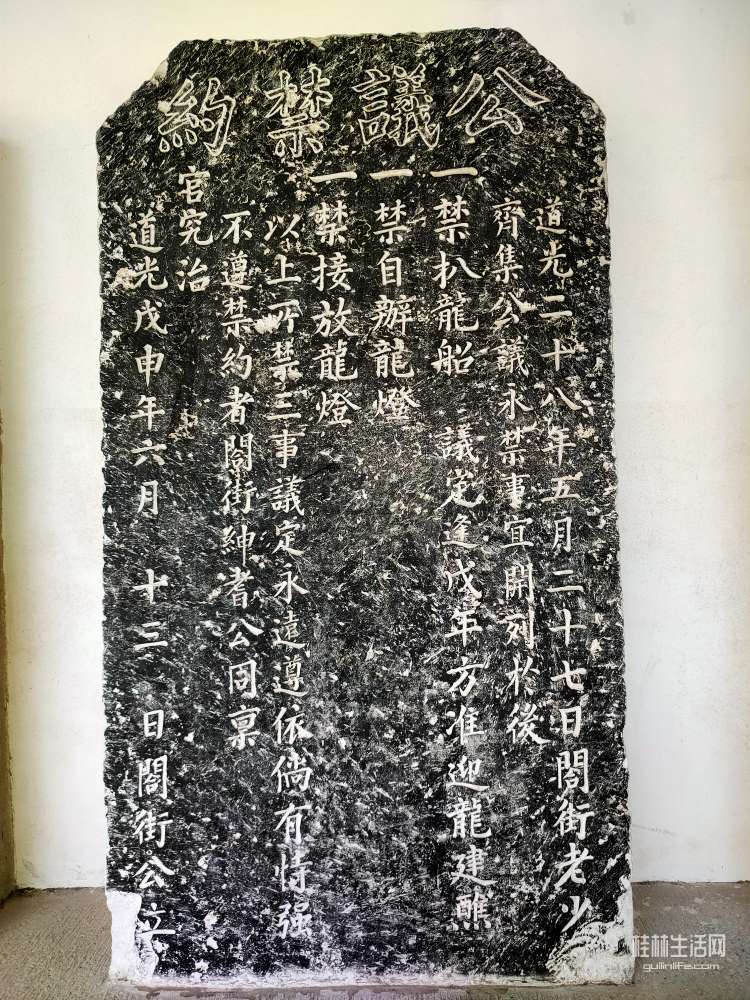 公議禁約
道光二十八年五月二十七日閤街老少
齊集公議永禁事宜開列於後
一禁扒龍船 議定逢戊年方准迎龍建醮
一禁自辦龍燈
一禁接放龍燈
以上所禁三事議定永遠遵依倘有恃强
不遵禁約者閤街紳耆公同稟
官究治
道光戊申年六月 十三 日閤街公立
桂林生活网
guilinlife.com